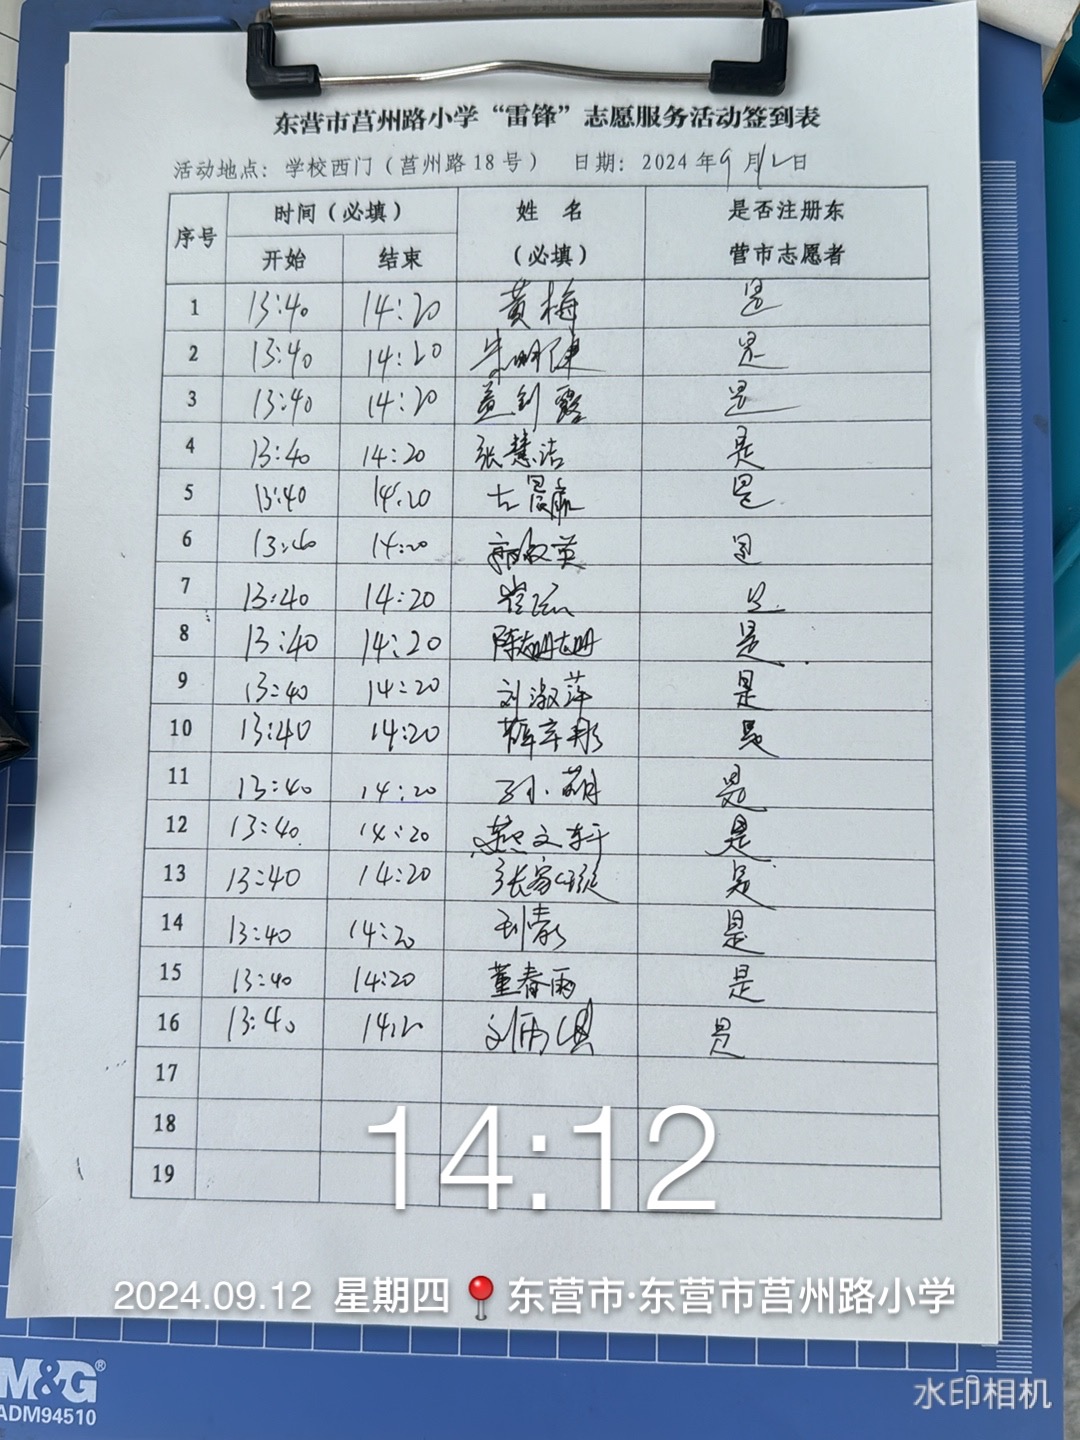 东营市莒州路小学“雷锋”志愿服务活动签到表
活动地点：学校西门（莒州路18号） 日期：2024年9月12日
序号 时间（必填） 姓 名 是否注册东
开始 结束 （必填） 营市志愿者
1 13:40 14:20 黄梅 是
2 13:40 14:20 朱明健 是
3 13:40 14:20 是
4 13:40 14:20 张慧洁 是
5 13:40 14:20 是
6 13:40 14:20 是
7 13:40 14:20 是
8 13:40 14:20 是
9 13:40 14:20 刘淑萍 是
10 13:40 14:20 是
11 13:40 14:20 孙萌 是
12 13:40 14:20 燕文轩 是
13 13:40 14:20 是
14 13:40 14:20 是
15 13:40 14:20 董春雨 是
16 13:40 14:20 是
17
18
19
14:12
2024.09.12 星期四 东营市·东营市莒州路小学
M&G®
ADM94510
水印相机